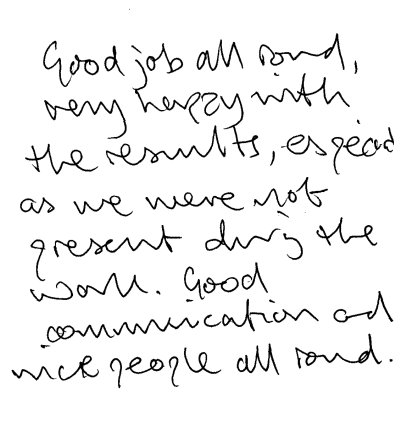 Good job all round,
very happy with
the results, especially
as we were not
present during the
work. Good
communication and
nice people all round.